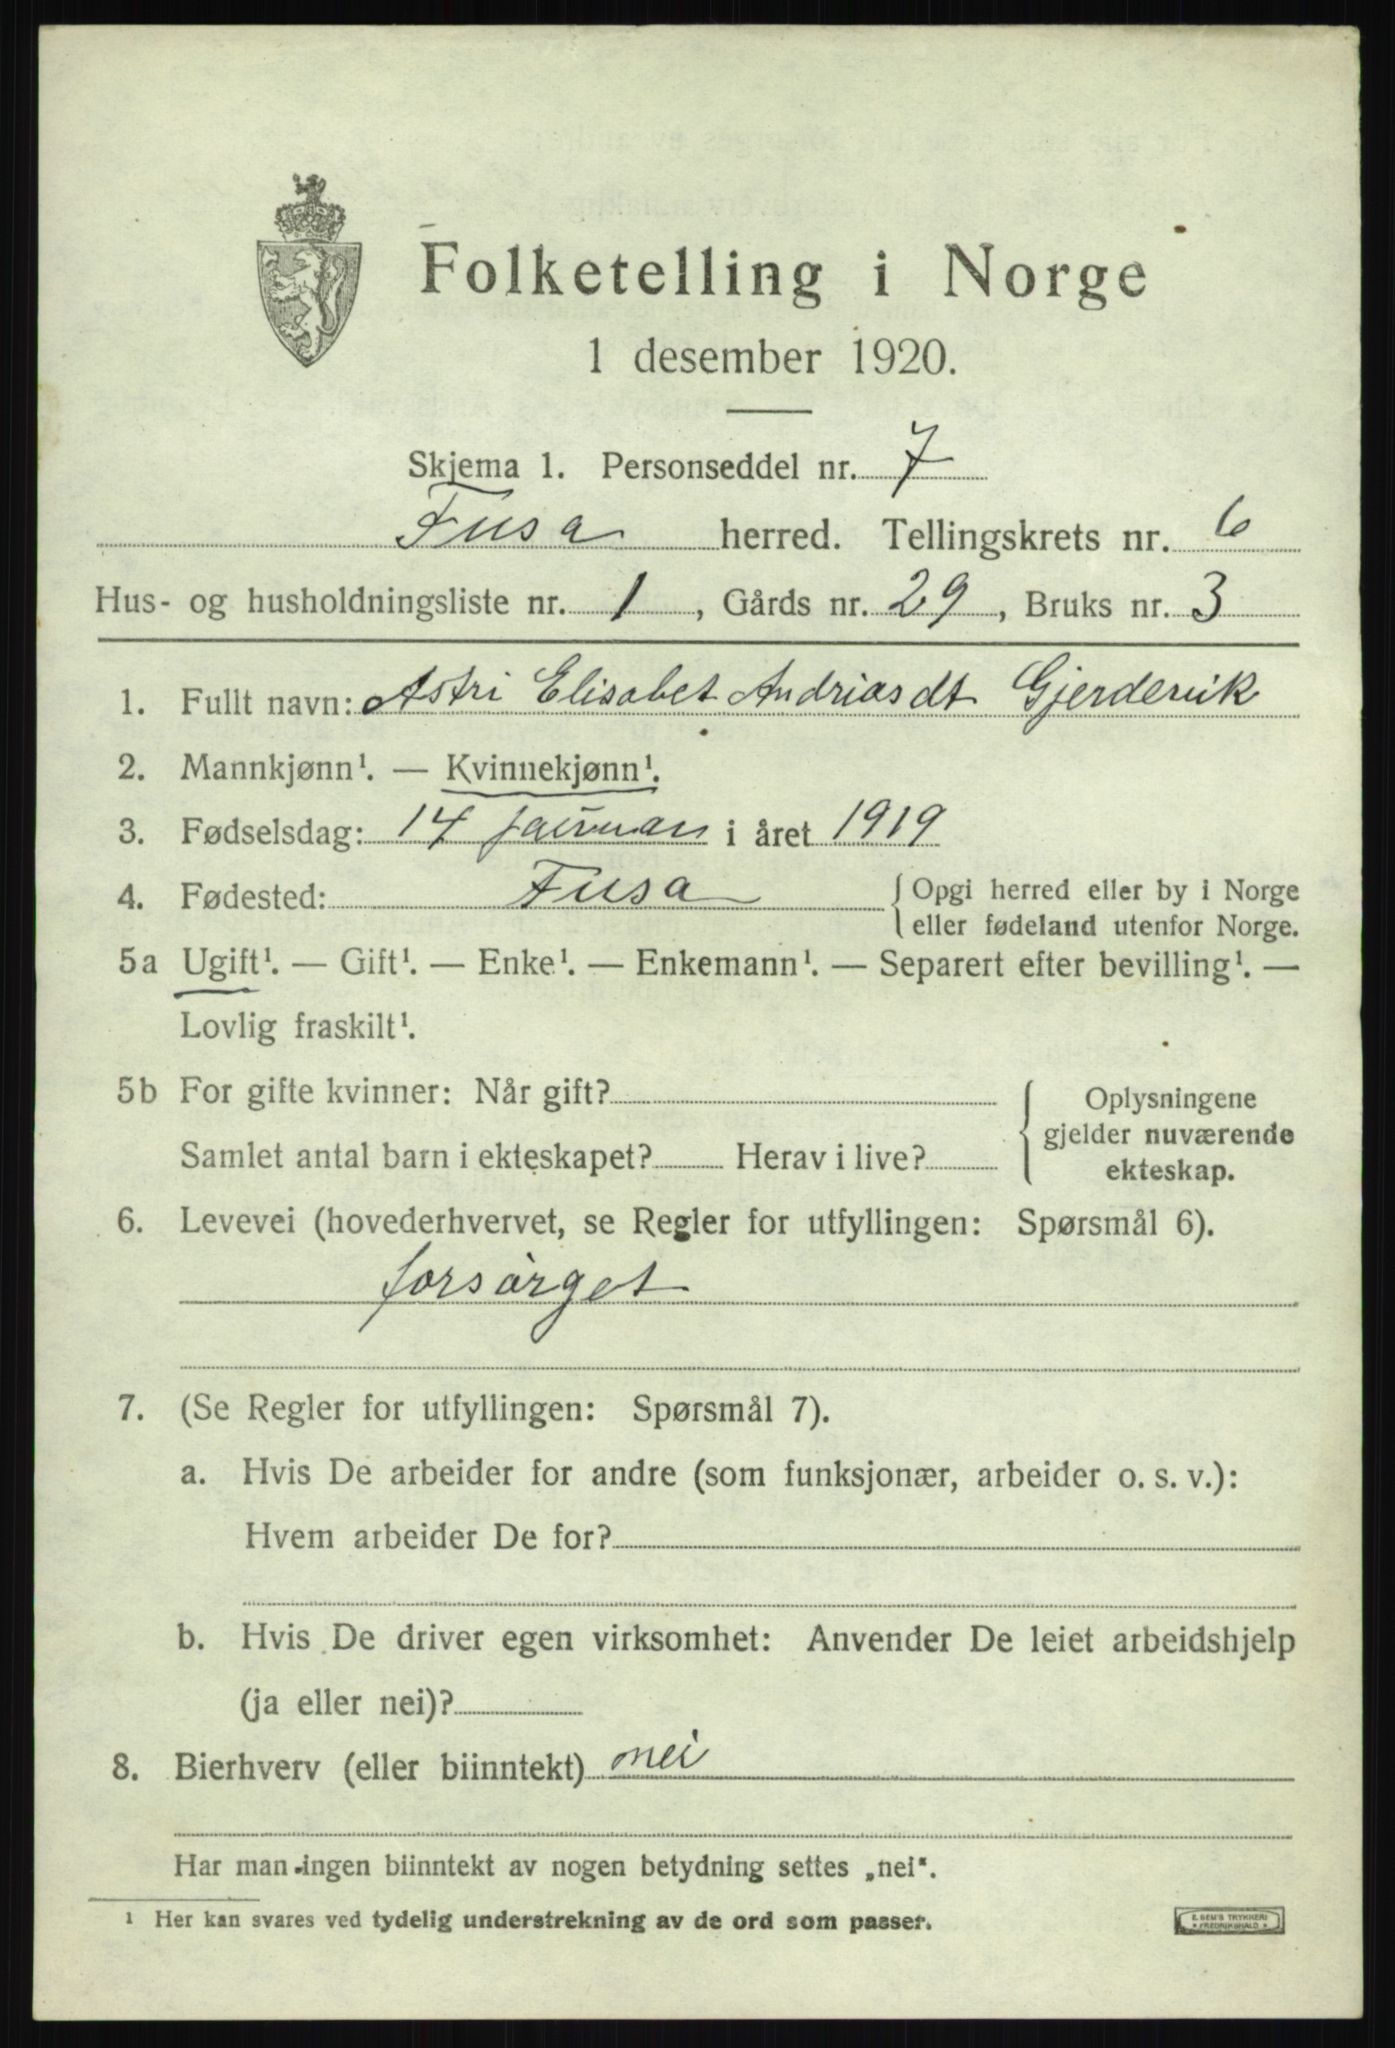 Folketelling i Norge
1 desember 1920.
Skjema 1. Personseddel nr. 7
Fusa herred. Tellingskrets nr. 6
Hus- og husholdningsliste nr. 1, Gårds nr. 29, Bruks nr. 3
1. Fullt navn: Astri Elisabet Andriasdt Gjerdervik
2. Mannkjønn¹. — Kvinnekjønn¹.
3. Fødselsdag: 14 januar i året 1919
4. Fødested: Fusa { Opgi herred eller by i Norge
eller fødeland utenfor Norge.
5a Ugift¹. — Gift¹. — Enke¹. — Enkemann¹. — Separert efter bevilling¹. —
Lovlig fraskilt¹.
5b For gifte kvinner: Når gift?
Samlet antal barn i ekteskapet? Herav i live?
Oplysningene
gjelder nuværende
ekteskap.
6. Levevei (hovederhvervet, se Regler for utfyllingen: Spørsmål 6).
forsørget
7. (Se Regler for utfyllingen: Spørsmål 7).
a. Hvis De arbeider for andre (som funksjonær, arbeider o. s. v.):
Hvem arbeider De for?
b. Hvis De driver egen virksomhet: Anvender De leiet arbeidshjelp
(ja eller nei)?
8. Bierhverv (eller biinntekt) nei
Har man ingen biinntekt av nogen betydning settes „nei“.
¹ Her kan svares ved tydelig understrekning av de ord som passer.
E. SEM'S TRYKKERI
FREDRIKSHALD